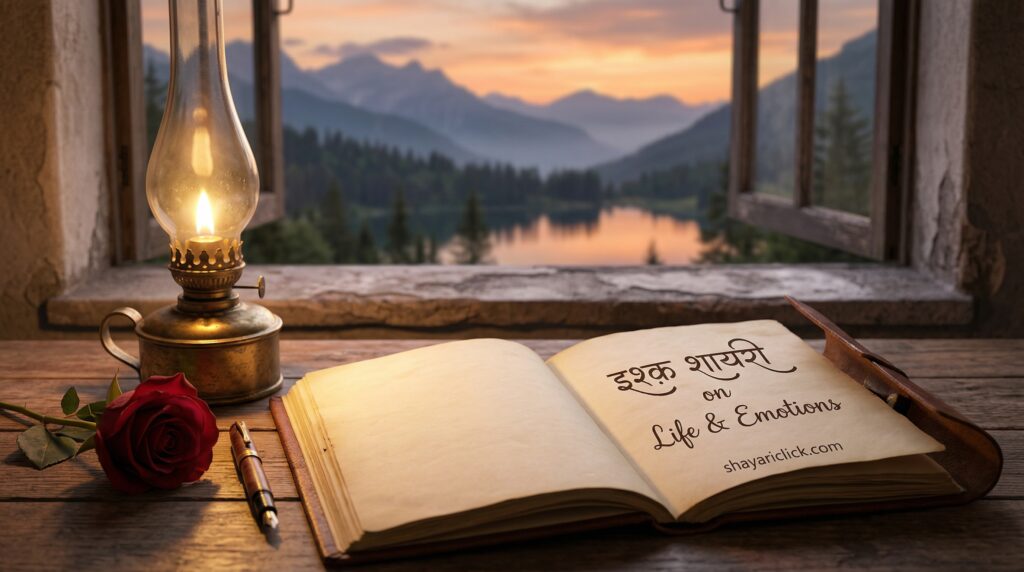 इश्क़ शायरी
on
Life & Emotions
shayariclick.com